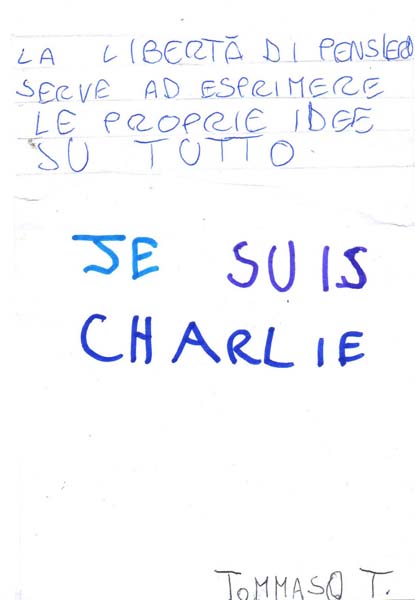 LA LIBERTÀ DI PENSIERO
SERVE AD ESPRIMERE
LE PROPRIE IDEE
SU TUTTO
JE SUIS
CHARLIE
TOMMASO T.